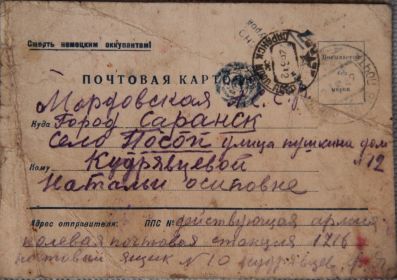 Смерть немецким оккупантам!
ПОЧТОВАЯ КАРТО
Мордовская А.С.С.Р
Куда Город Саранск
село Посоп улица пушкина дом
№12
Кому Кудрявцевой
Натальи осиповне
Адрес отправителя: ППС № действующая армия
полевая почтовая станция 1216
почтовый ящик №10 Кудрявцев